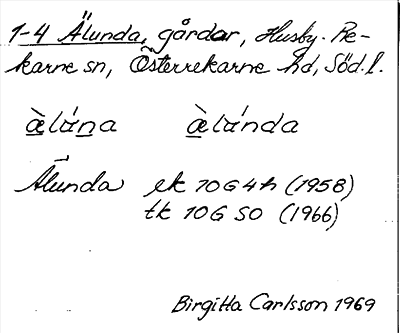 1-4 Älunda, gårdar, Husby-Re-
karne sn, Österrekarne hd, Söd.l.
æ̀lǻna æ̀lǻnda
Ålunda ek 10G4h (1958)
tk 10G SO (1966)
Birgitta Carlsson 1969